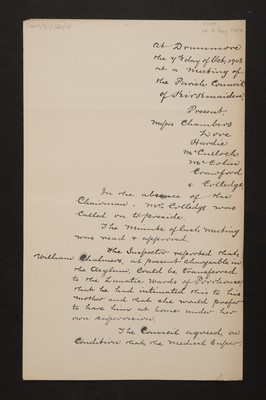 At Drummore
the 7th day of Oct, 1903
at a Meeting of
the Parish Council
of Kirkmaiden,
Present
Messrs Chambers
Love
Hardie
McCulloch
McColm
Crawford
& Colledge
In the absence of the
Chairman. Mr. Colledge was
called on to preside.
The Minute of last meeting
was read & approved
The Inspector reported that
William Chalmers, at present chargeable in
the Asylum, could be transferred
to the Lunatic Wards of Poorhouse
that he had intimated this to his
mother and that she would prefer
to have him at home under her
own supervision.
The Council agreed on
Condition that the Medical Super: